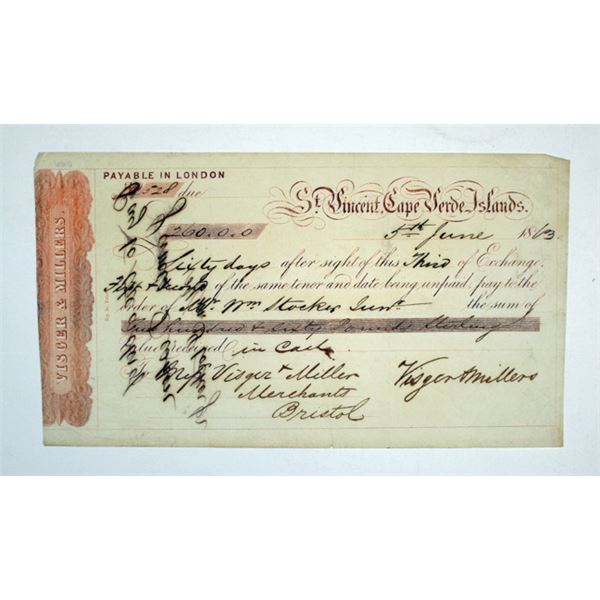 PAYABLE IN LONDON
528 due
St. Vincent, Cape Verde Islands.
260.0.0
5th June 1863.
Sixty days after sight of this Third of Exchange,
First & Second of the same tenor and date being unpaid, pay to the
order of Mr. Wm Stocker Junr. the sum of
Two hundred & Sixty Pounds Sterling
Value received in Cash
To
Visger & Miller
Visger & Millers
Merchants
Bristol
VISGER & MILLERS.